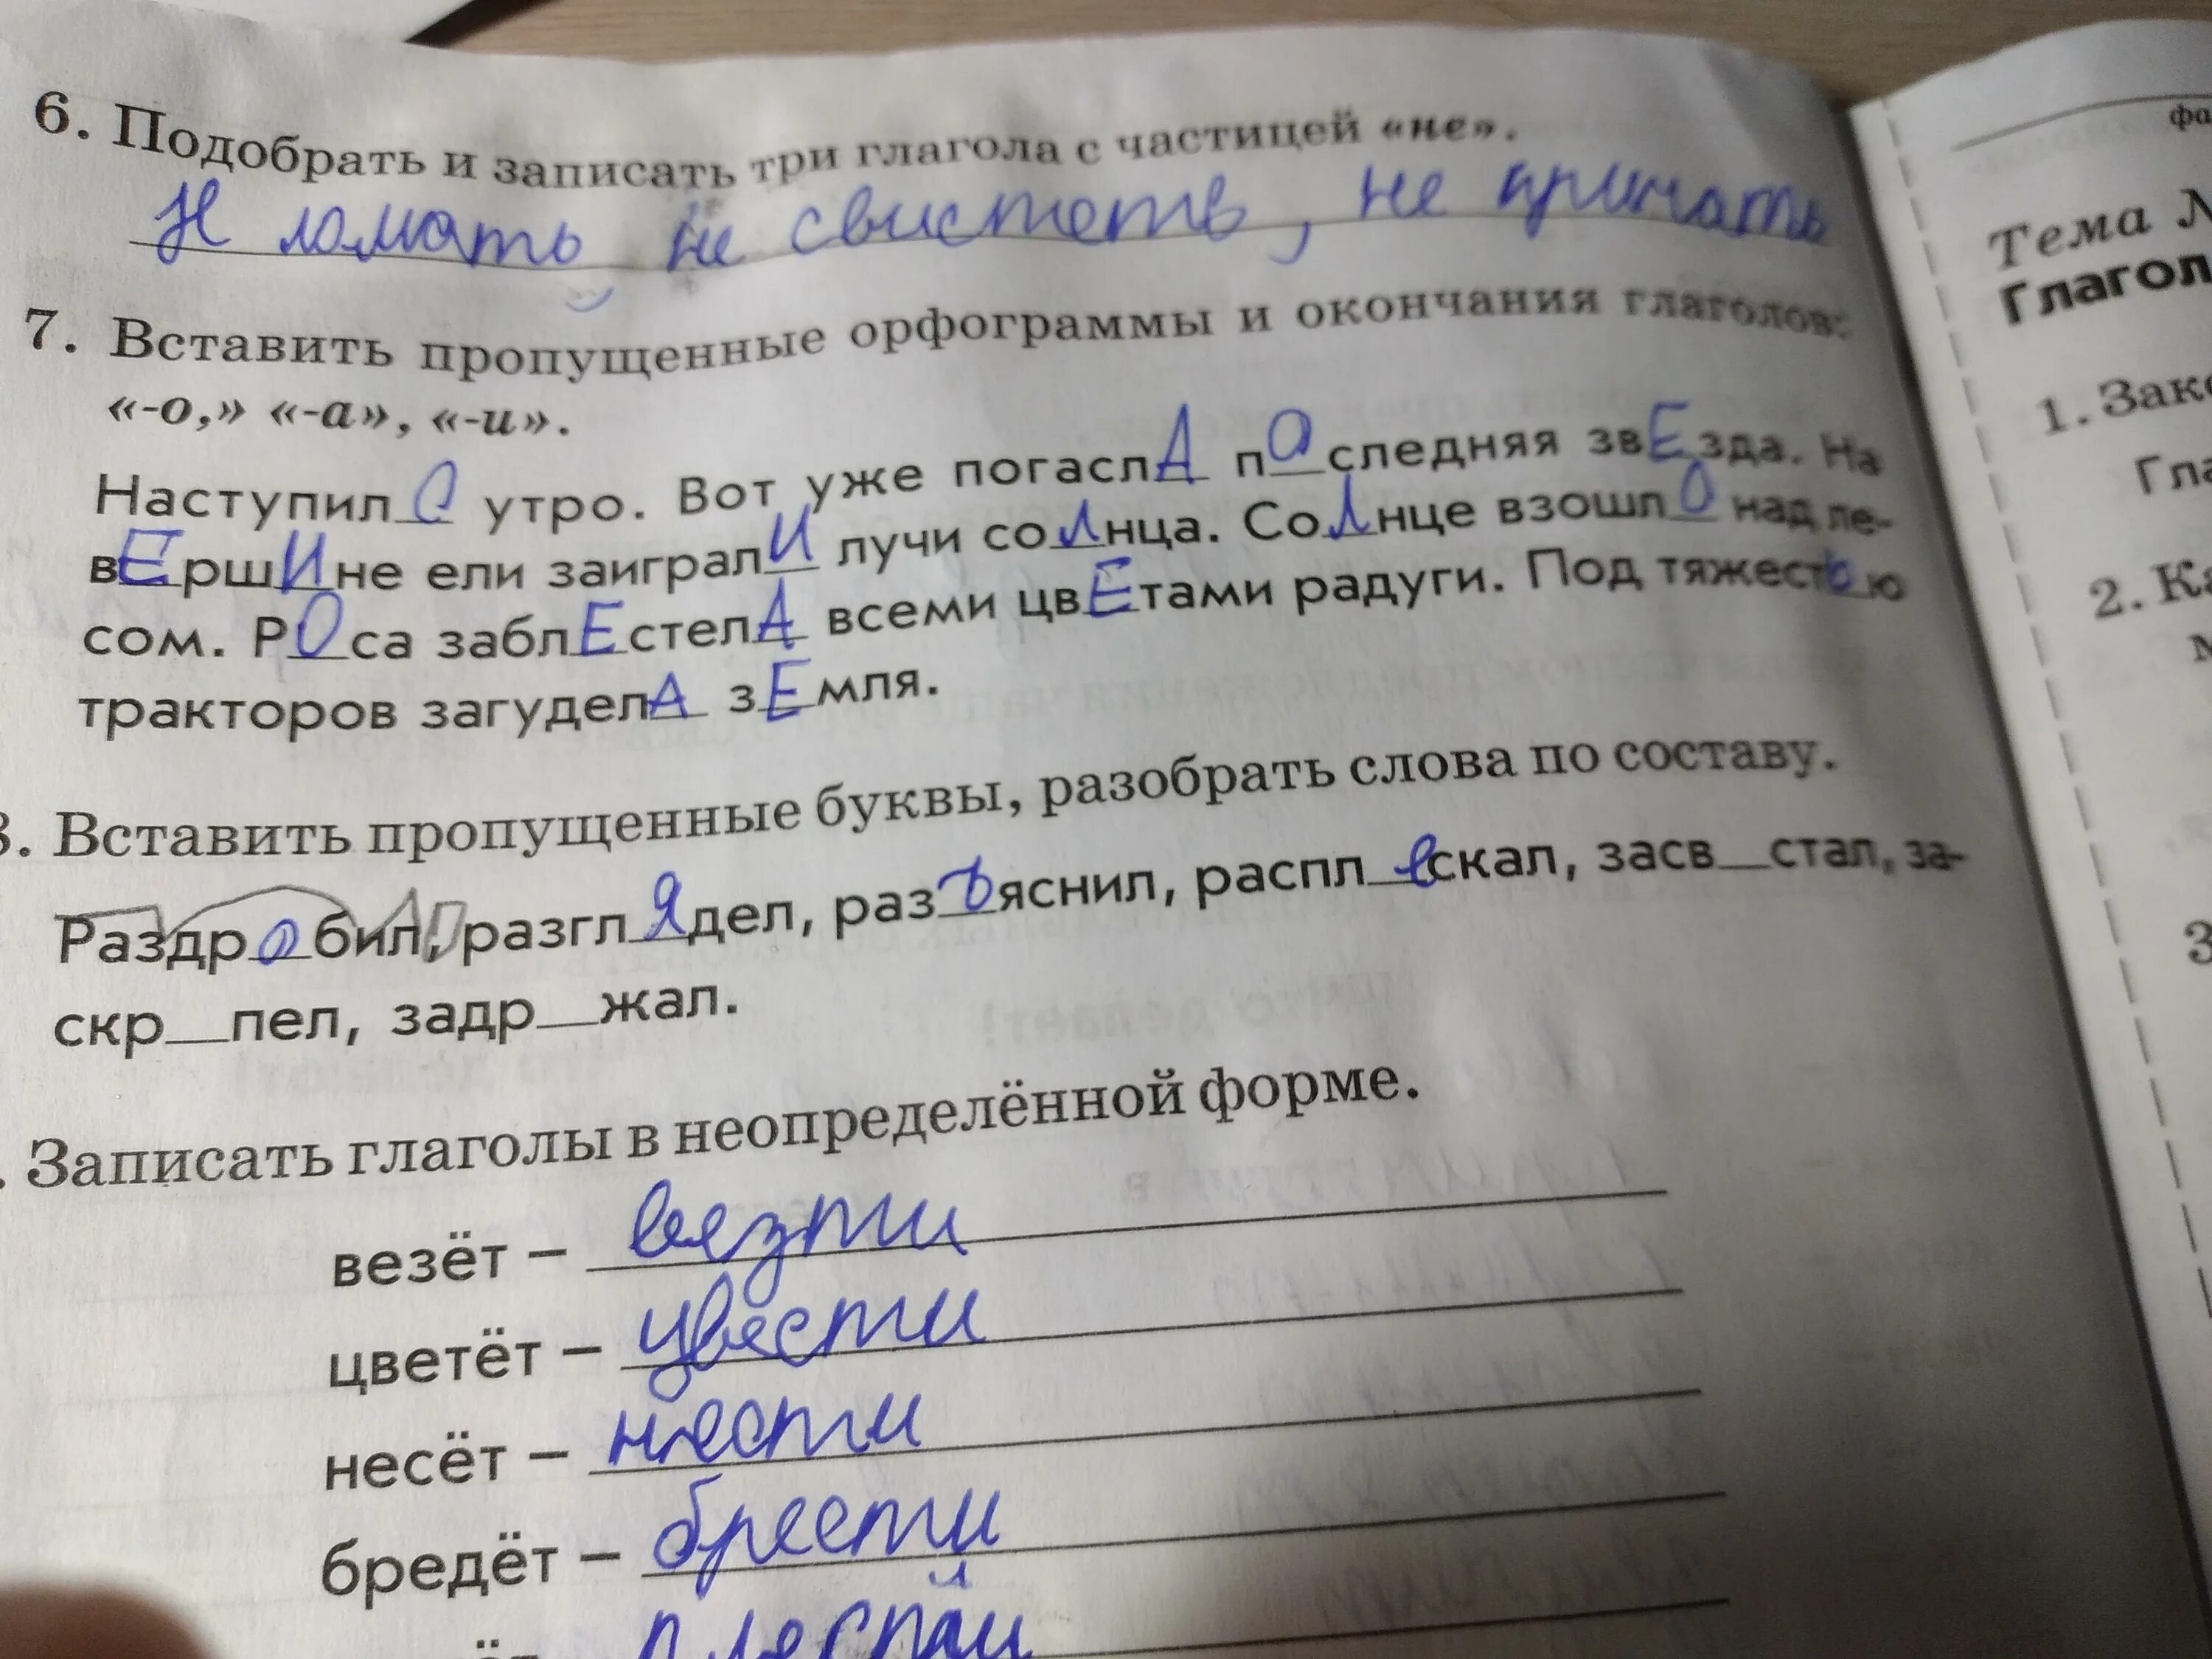 6. Подобрать и записать три глагола с частицей «не».
Н ломать не свистеть, не
7. Вставить пропущенные орфограммы и окончания глаголов:
«-о,» «-а», «-и».
НаступилО утро. Вот уже погаслА пОследняя звЕзда. На
вЕршИне ели заигралИ лучи соЛнца. СоЛнце взошлО над ле-
сом. РОса заблЕстелА всеми цвЕтами радуги. Под тяжестью
тракторов загуделА зЕмля.
8. Вставить пропущенные буквы, разобрать слова по составу.
Раздробил, разглЯдел, разъяснил, расплескал, засв__стал, за-
скр__пел, задр__жал.
. Записать глаголы в неопределённой форме.
везёт – везти
цветёт – цвести
несёт – нести
бредёт – брести
фа
Тема
Глагол
1. Зако
Гла
2. Ка
3